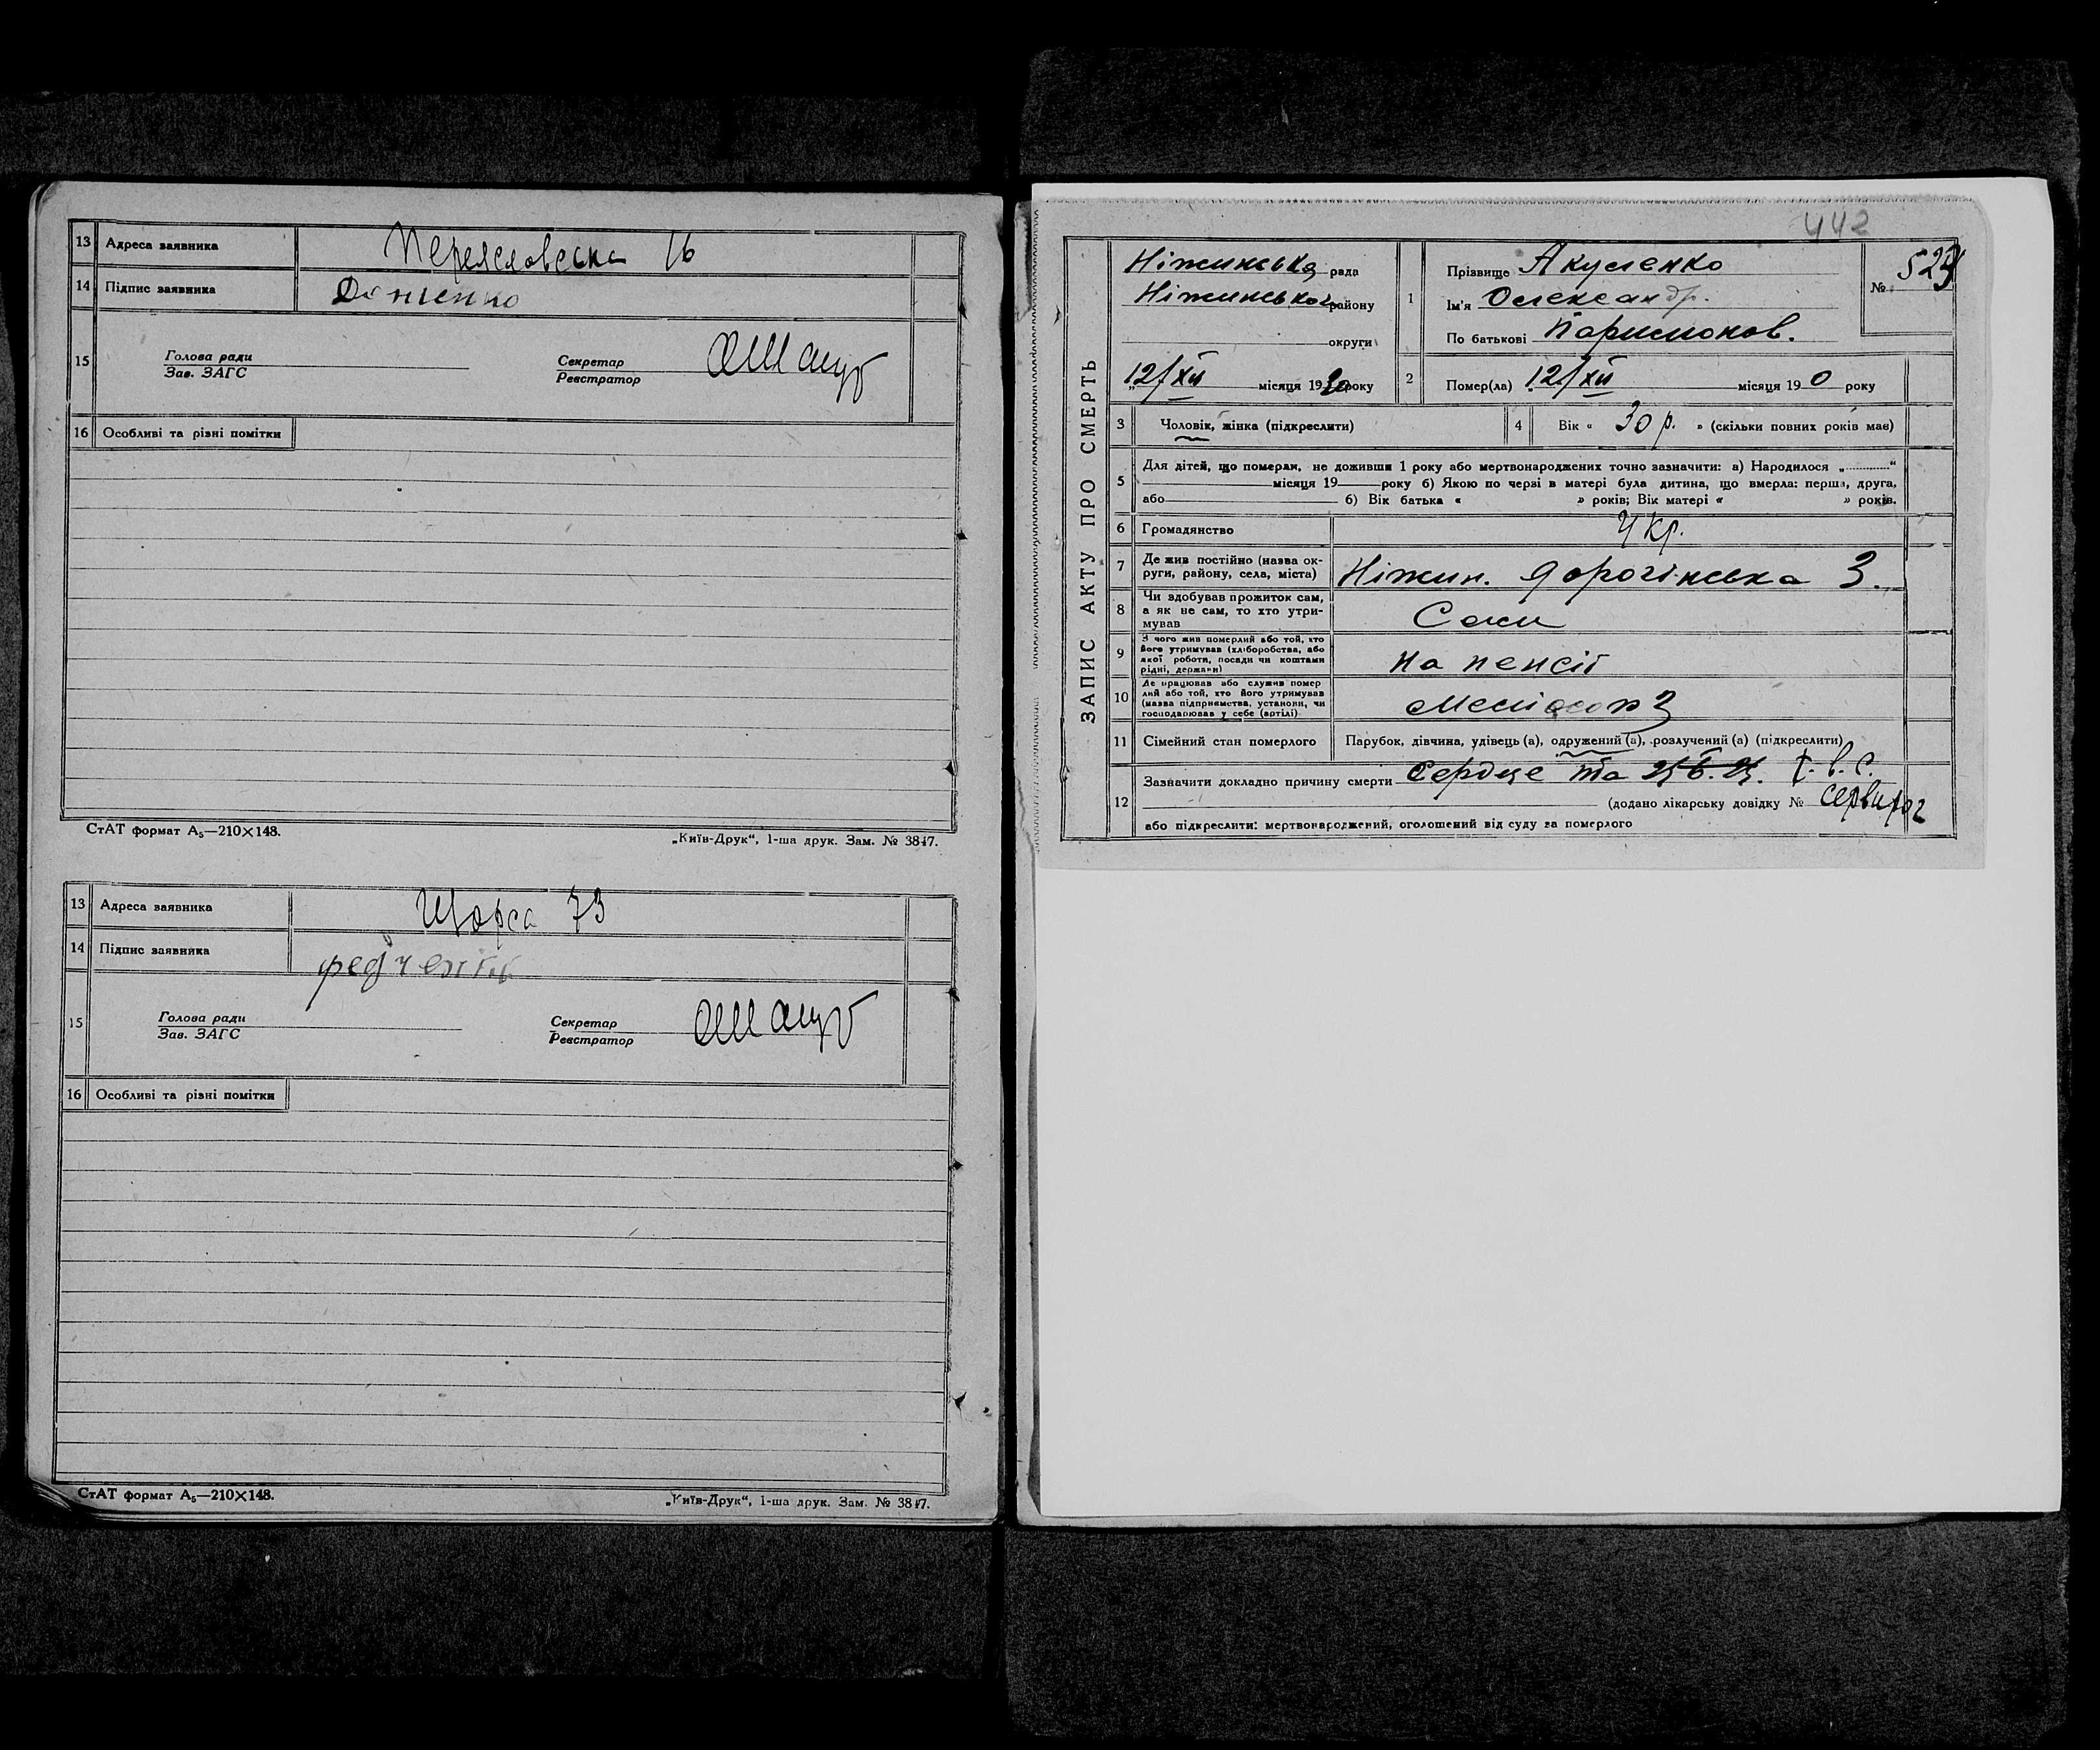 13 Адреса заявника Переяславська 16
14 Підпис заявника
15 Голова ради
Зав. ЗАГС
Секретар
Реєстратор
16 Особливі та різні помітки
СтАТ формат А5—210×148.
„Київ-Друк“, 1-ша друк. Зам. № 3847.
13 Адреса заявника Щорса 73
14 Підпис заявника
15 Голова ради
Зав. ЗАГС
Секретар
Реєстратор
16 Особливі та різні помітки
СтАТ формат А5—210×148.
„Київ-Друк“, 1-ша друк. Зам. № 3847.
442
ЗАПИС АКТУ ПРО СМЕРТЬ
Ніжинська рада
Ніжинського району
округи
12/XII місяця 19 року
1 Прізвище Акуленко
Ім'я Олександр.
По батькові
№ 523
2 Помер(ла) 12/XII місяця 19 0 року
3 Чоловік, жінка (підкреслити)
4 Вік « 30 р. » (скільки повних років має)
5 Для дітей, що померли, не доживши 1 року або мертвонароджених точно зазначити: а) Народилося „............“
місяця 19 року б) Якою по черзі в матері була дитина, що вмерла: перша, друга,
або б) Вік батька « » років; Вік матері « » років.
6 Громадянство Укр.
7 Де жив постійно (назва ок-
руги, району, села, міста) Ніжин. Дорогінська 3.
8 Чи здобував прожиток сам,
а як не сам, то хто утри-
мував Сам
9 З чого жив померлий або той, хто
його утримував (хліборобства, або
якої роботи, посади чи коштами
рідні, держави) на пенсії
10 Де працював або служив помер
лий або той, хто його утримував
(назва підприємства, установи, чи
господарював у себе (артілі)
11 Сімейний стан померлого Парубок, дівчина, удівець (а), одружений (а), розлучений (а) (підкреслити)
12 Зазначити докладно причину смерти Сердце та
(додано лікарську довідку №
або підкреслити: мертвонароджений, оголошений від суду за померлого